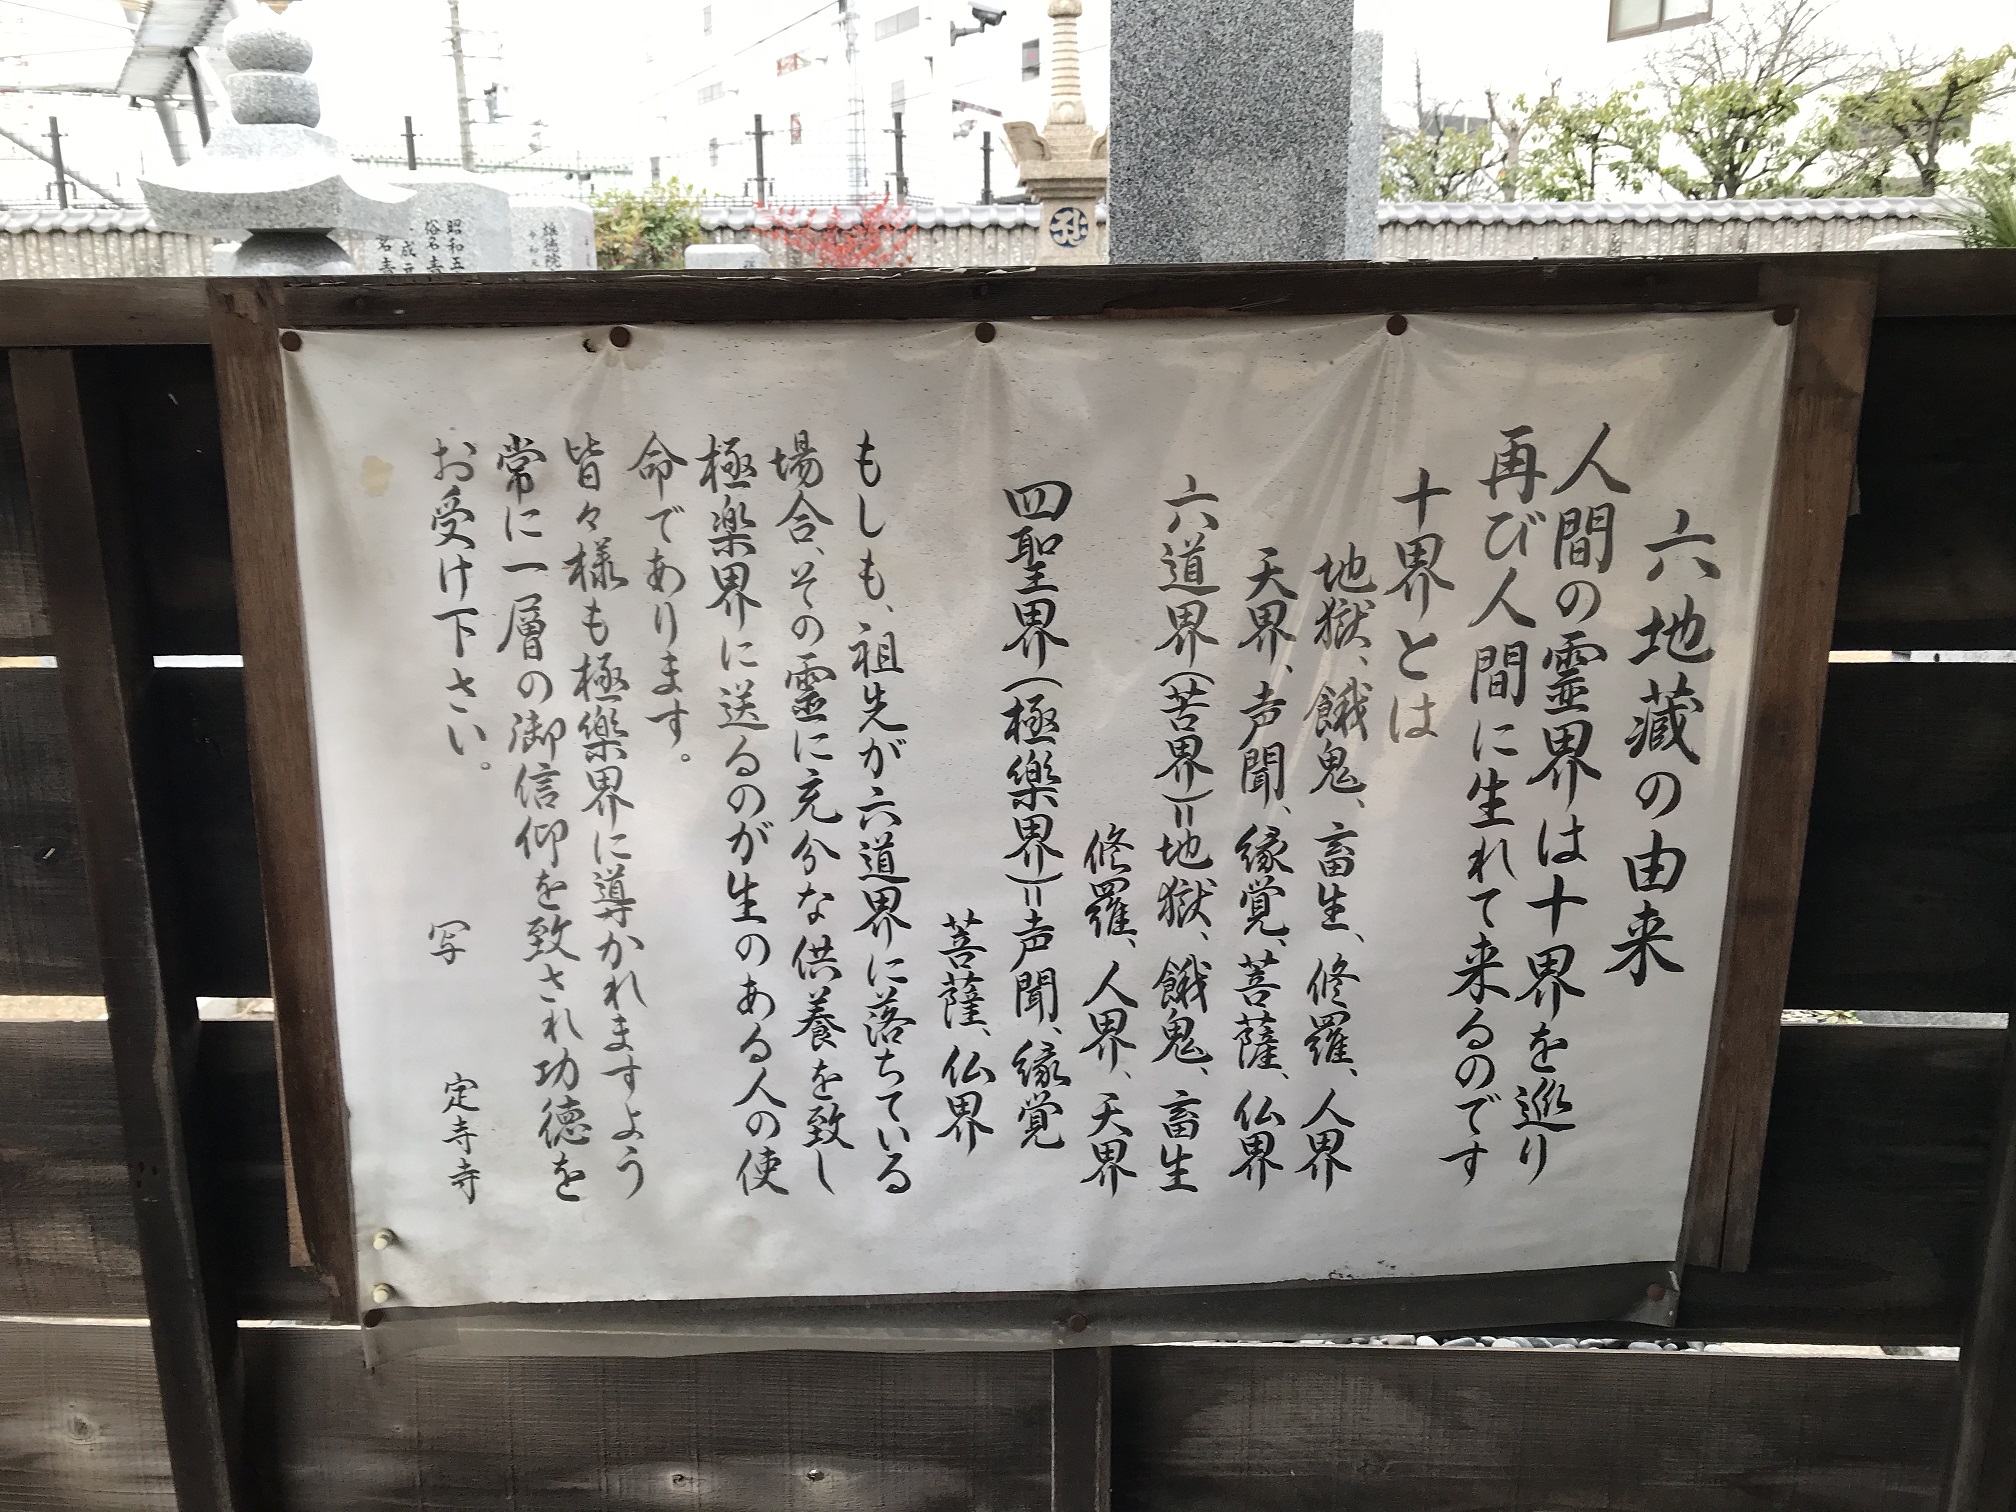 六地蔵の由来
人間の霊界は十界を巡り
再び人間に生れて来るのです
十界とは
地獄、餓鬼、畜生、修羅、人界
天界、声聞、縁覚、菩薩、仏界
六道界(苦界)=地獄、餓鬼、畜生
修羅、人界、天界
四聖界(極樂界)=声聞、縁覚
菩薩、仏界
もしも、祖先が六道界に落ちている
場合、その霊に充分な供養を致し
極楽界に送るのが生のある人の使
命であります。
皆々様も極樂界に導かれますよう
常に一層の御信仰を致され功徳を
お受け下さい。
写 定寺寺
昭和五
俗名